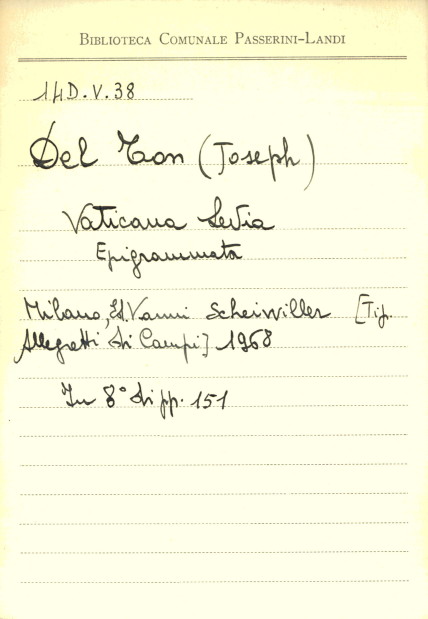 BIBLIOTECA COMUNALE PASSERINI-LANDI
14D.V.38
Del Ton (Joseph)
Vaticana Levia
Epigrammata
Milano, Ed. Vanni Scheiwiller [Tip.
Allegretti di Campi] 1968
In 8° di pp. 151